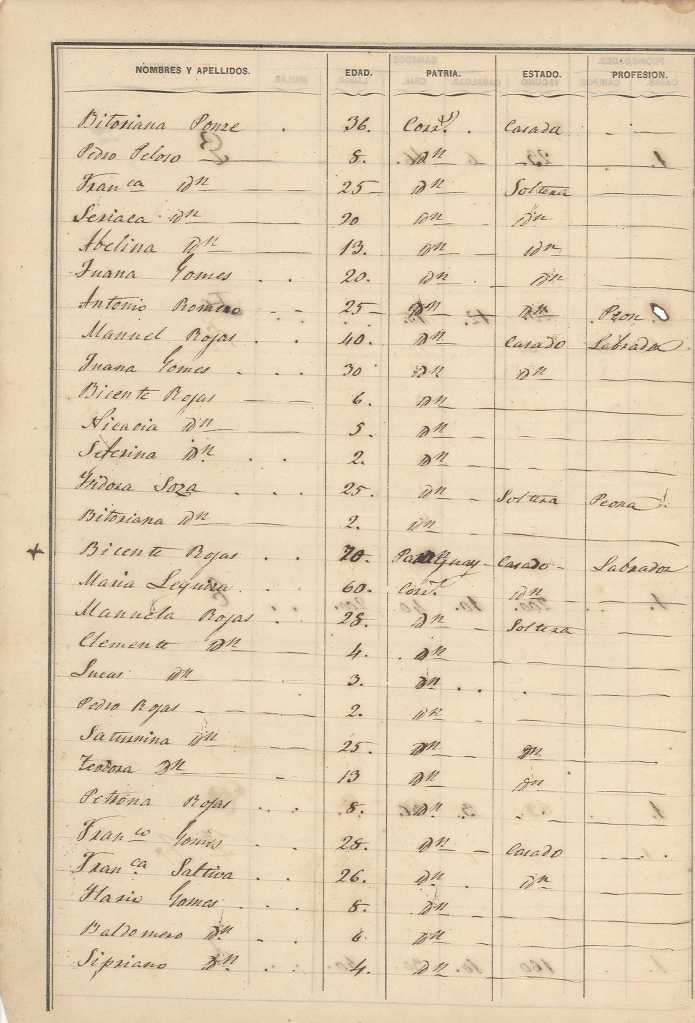 NOMBRES Y APELLIDOS. EDAD. PATRIA. ESTADO. PROFESION.
Bitoriana Ponse 36. Corr.s Casada
Pedro Peloso 8. Dn
Franca Dn 25 Dn Soltera
Seriaca Dn 20 Dn Dn
Abelina Dn 13. Dn Dn
Juana Gomes 20. Dn Dn
Antonio Romero 25 Dn Dn Peon
Manuel Rojas 40. Dn Casado Labrador
Juana Gomes 30 Dn Dn
Bicente Rojas 6. Dn
Nicacia Dn 5. Dn
Seferina Dn 2. Dn
Ysidora Soza 25. Dn Soltera Peona
Bitoriana Dn 2. Dn
Bicente Rojas 70. Paraguay Casado Labrador
Maria Lequisa 60. Corr.s Dn
Manuela Rojas 28. Dn Soltera
Clemente Dn 4. Dn
Lucas Dn 3. Dn
Pedro Rojas 2. Dn
Saturnina Dn 25. Dn Dn
Teodora Dn 13 Dn Dn
Petrona Rojas 8. Dn
Franco Gomes 28. Dn Casado
Franca Saltiva 26. Dn Dn
Ylario Gomes 8. Dn
Baldomero Dn 6 Dn
Sipriano Dn 4. Dn